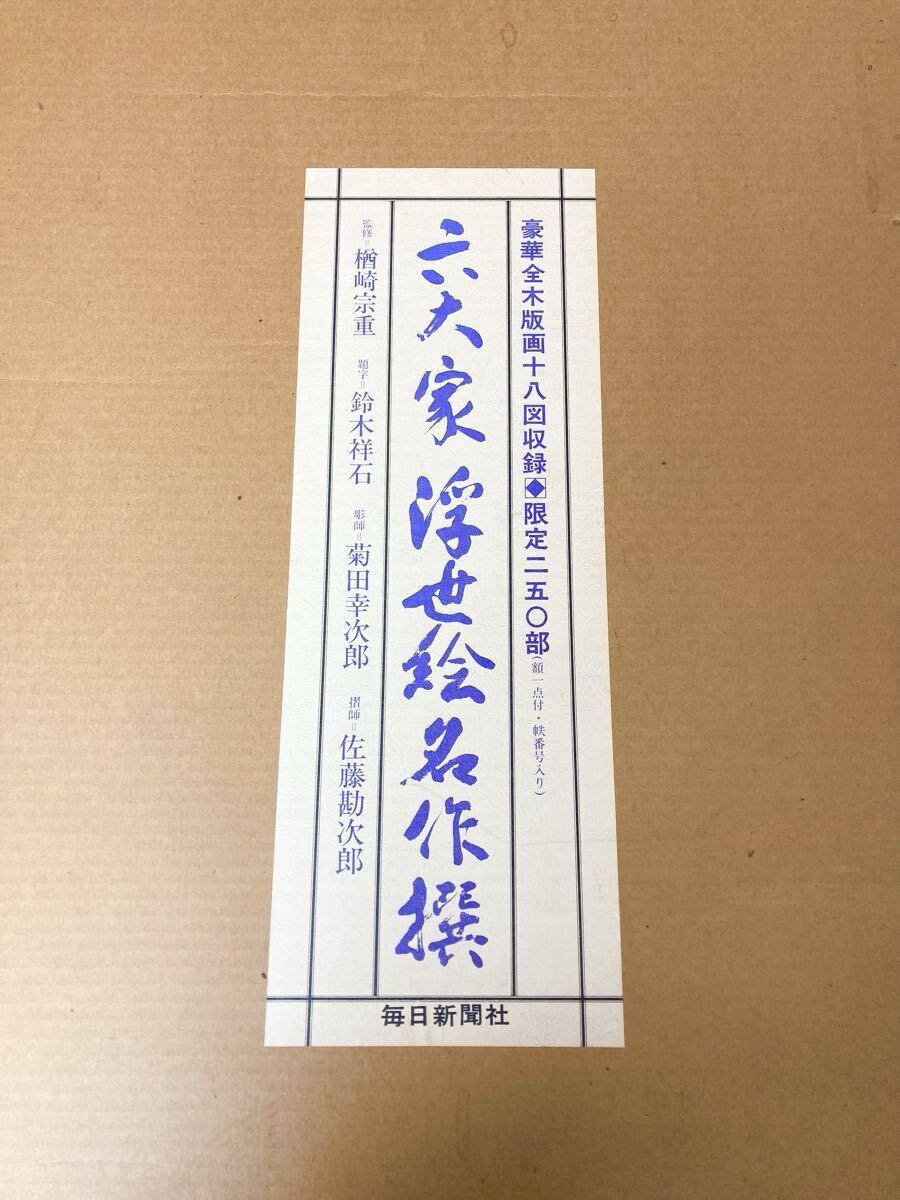 豪華全木版画十八図収録◆限定二五〇部(額一点付・帙番号入り)
六大家 浮世絵名作撰
監修=楢崎宗重 題字=鈴木祥石 彫師=菊田幸次郎 摺師=佐藤勘次郎
毎日新聞社